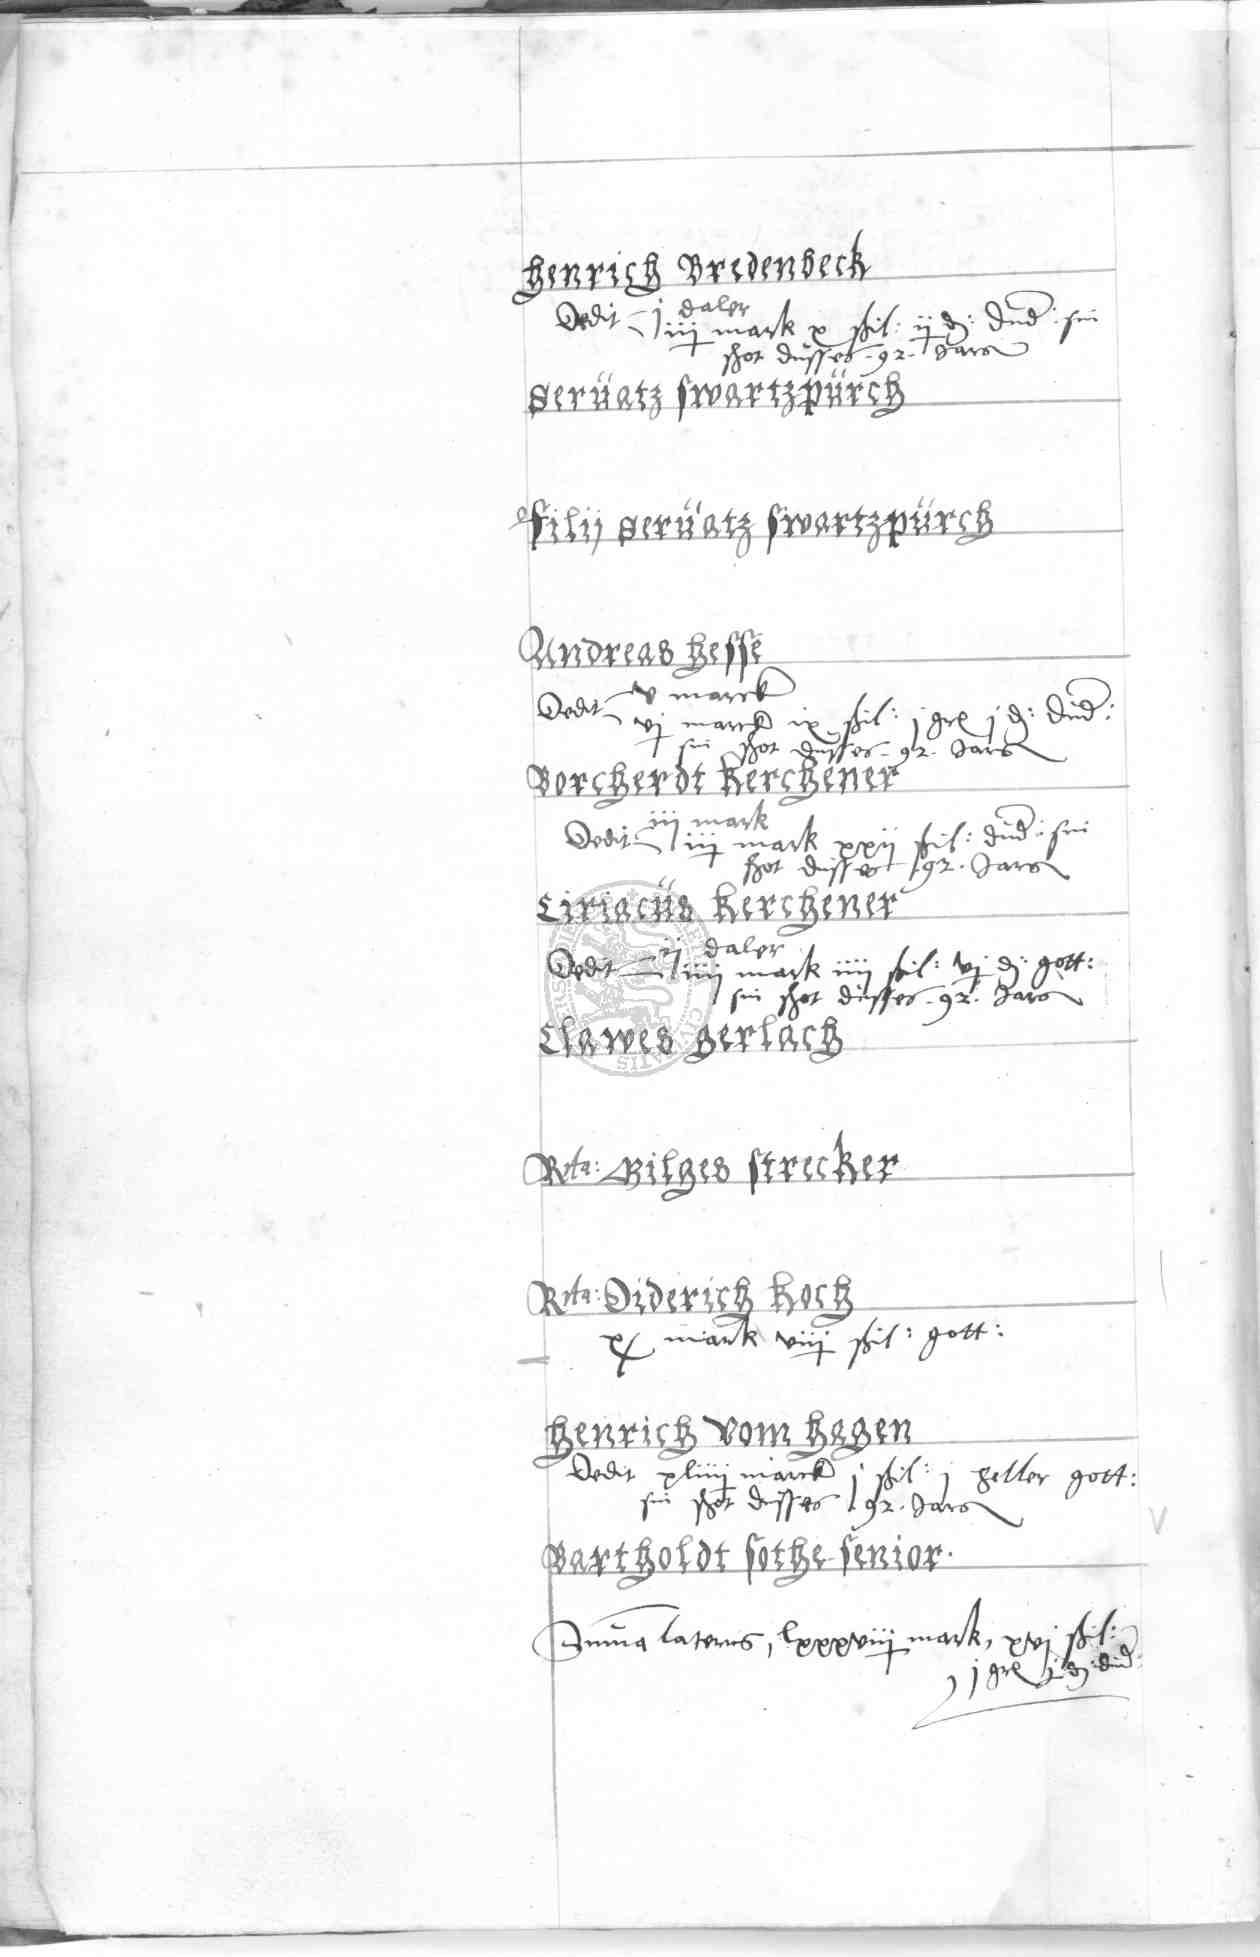 Henrich Bredenbeck
Dedit j daler
iiij mark x shil: ij d: dūd: sin
shot dusses 92. Jars
Serüatz Swartzpürch
Filij Serüatz Swartzpürch
Andreas Hesse
Dedit v marck
vj marck ix shil: j grl j d: dūd:
sin shot dusses 92. Jars
Borcherdt Kerchener
Dedit iij mark
iij mark xxij shil: dūd: sin
shot dusses 92. Jars
Ciriacüs Kerchener
Dedit ij daler
iiij mark iiij shil: vj d: gott:
sin shot dusses 92. Jars
Clawes Gerlach
Rta: Gilges Strecker
Rta: Diderich Koch
x mark viij shil: gott:
Henrich vom Hagen
Dedit xliiij marck j shil: j heller gott:
sin shot dusses 92. Jars
Bartholdt Sothe Senior.
Sum̄a lateris, lxxxviij mark, xvj shil:
j grl j d: dūd: